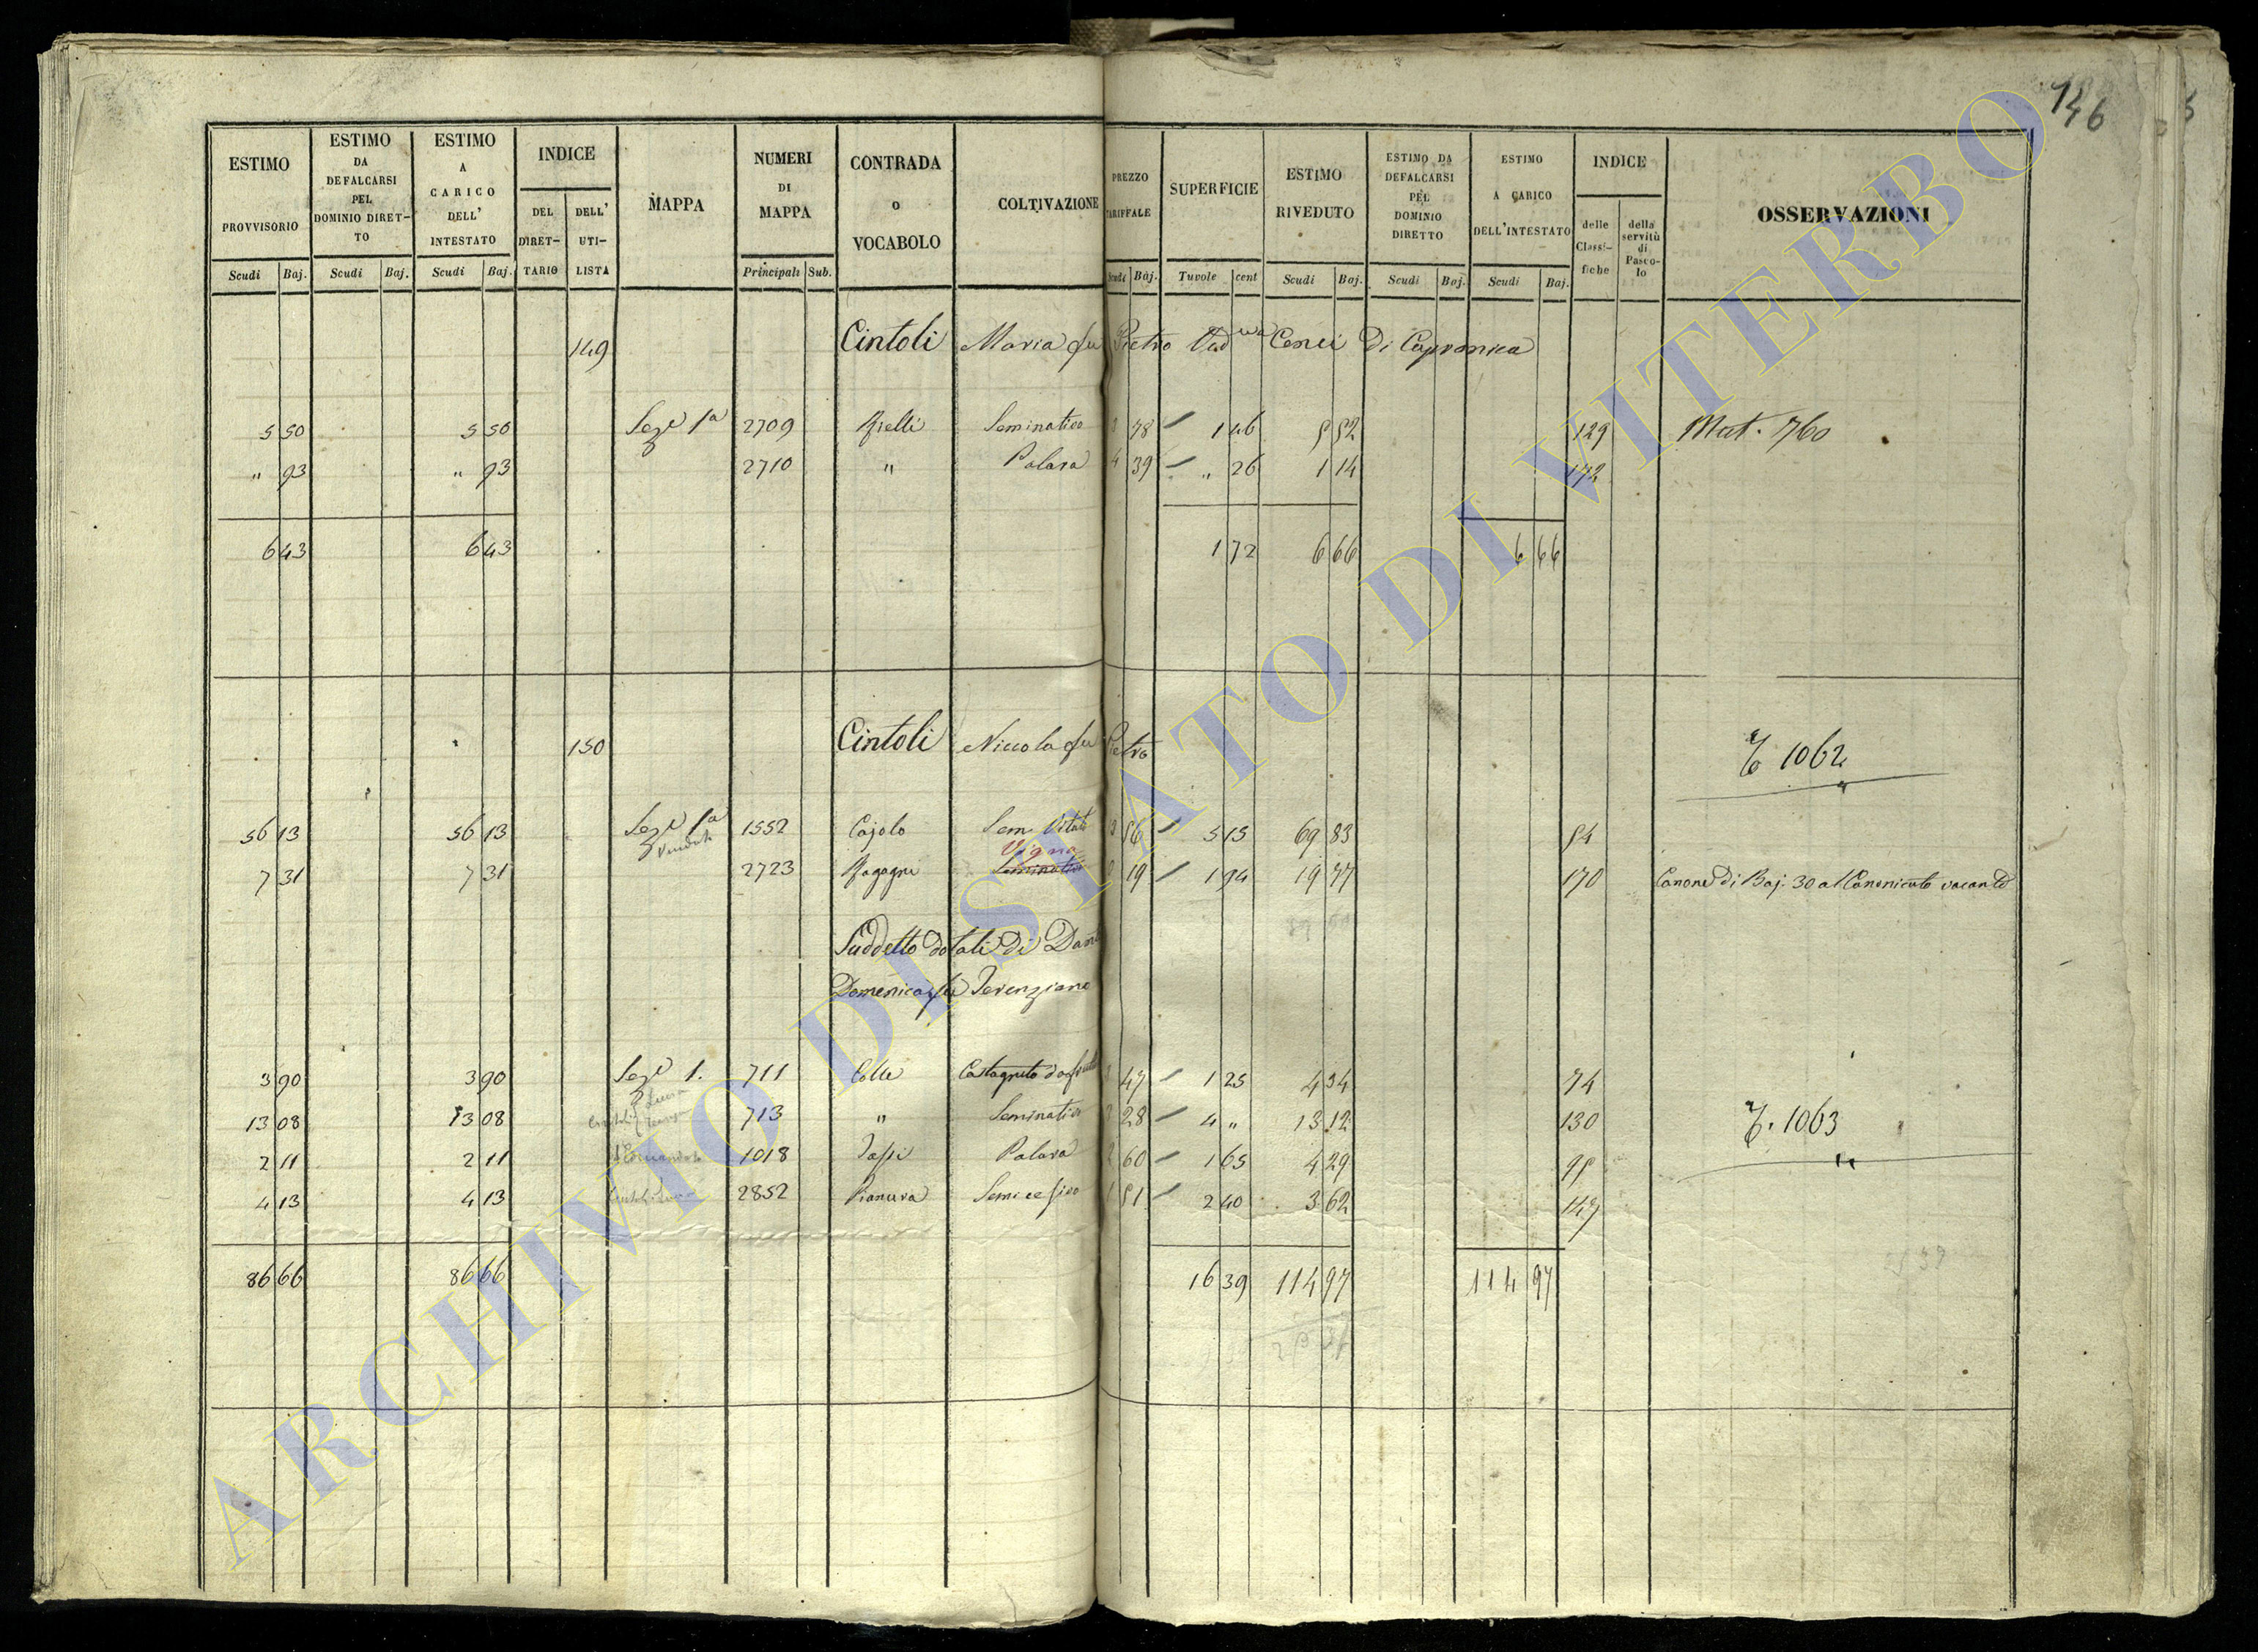 146
ESTIMO PROVVISORIO Scudi Baj. ESTIMO DA DEFALCARSI PEL DOMINIO DIRET-TO Scudi Baj. ESTIMO A CARICO DELL' INTESTATO Scudi Baj. INDICE DEL DIRET-TARIO DELL' UTI-LISTA MAPPA NUMERI DI MAPPA Principali Sub. CONTRADA O VOCABOLO COLTIVAZIONE PREZZO TARIFFALE Scudi Baj. SUPERFICIE Tavole cent ESTIMO RIVEDUTO Scudi Baj. ESTIMO DA DEFALCARSI PEL DOMINIO DIRETTO Scudi Baj. ESTIMO A CARICO DELL'INTESTATO Scudi Baj. INDICE delle Classi-fiche della servitù di Pasco-lo OSSERVAZIONI
149 Cintoli Maria fu Pietro Ved.va Cenci Di Capranica
5 50 5 50 Sez.e 1a 2709 Seminativo 3 78 1 46 5 52 129 Mut. 760
" 93 " 93 2710 " Palara 4 39 " 26 1 14 172
6 43 6 43 1 72 6 66 6 66
150 Cintoli Niccola fu Pietro
1062
56 13 56 13 Sez.e 1a 1552 Cajolo Sem. Vitato 56 5 15 69 83 54
Vigna
7 31 7 31 2723 Seminativo 19 1 94 19 77 170 Canone di Baj. 30 al Canonicato vacante
Suddetto dotali di
Domenica fu Terenziano
3 90 3 90 Sez.e 1. 711 Colle Castagneto da frutto 47 1 25 4 34 74
13 08 13 08 713 " Seminativo 3 28 4 " 13 12 130 1063
2 11 2 11 1018 Palara 2 60 1 65 4 29
4 13 4 13 2852 Pianura 1 51 2 40 3 62 147
86 66 86 66 16 39 114 97 114 97
ARCHIVIO DI STATO DI VITERBO